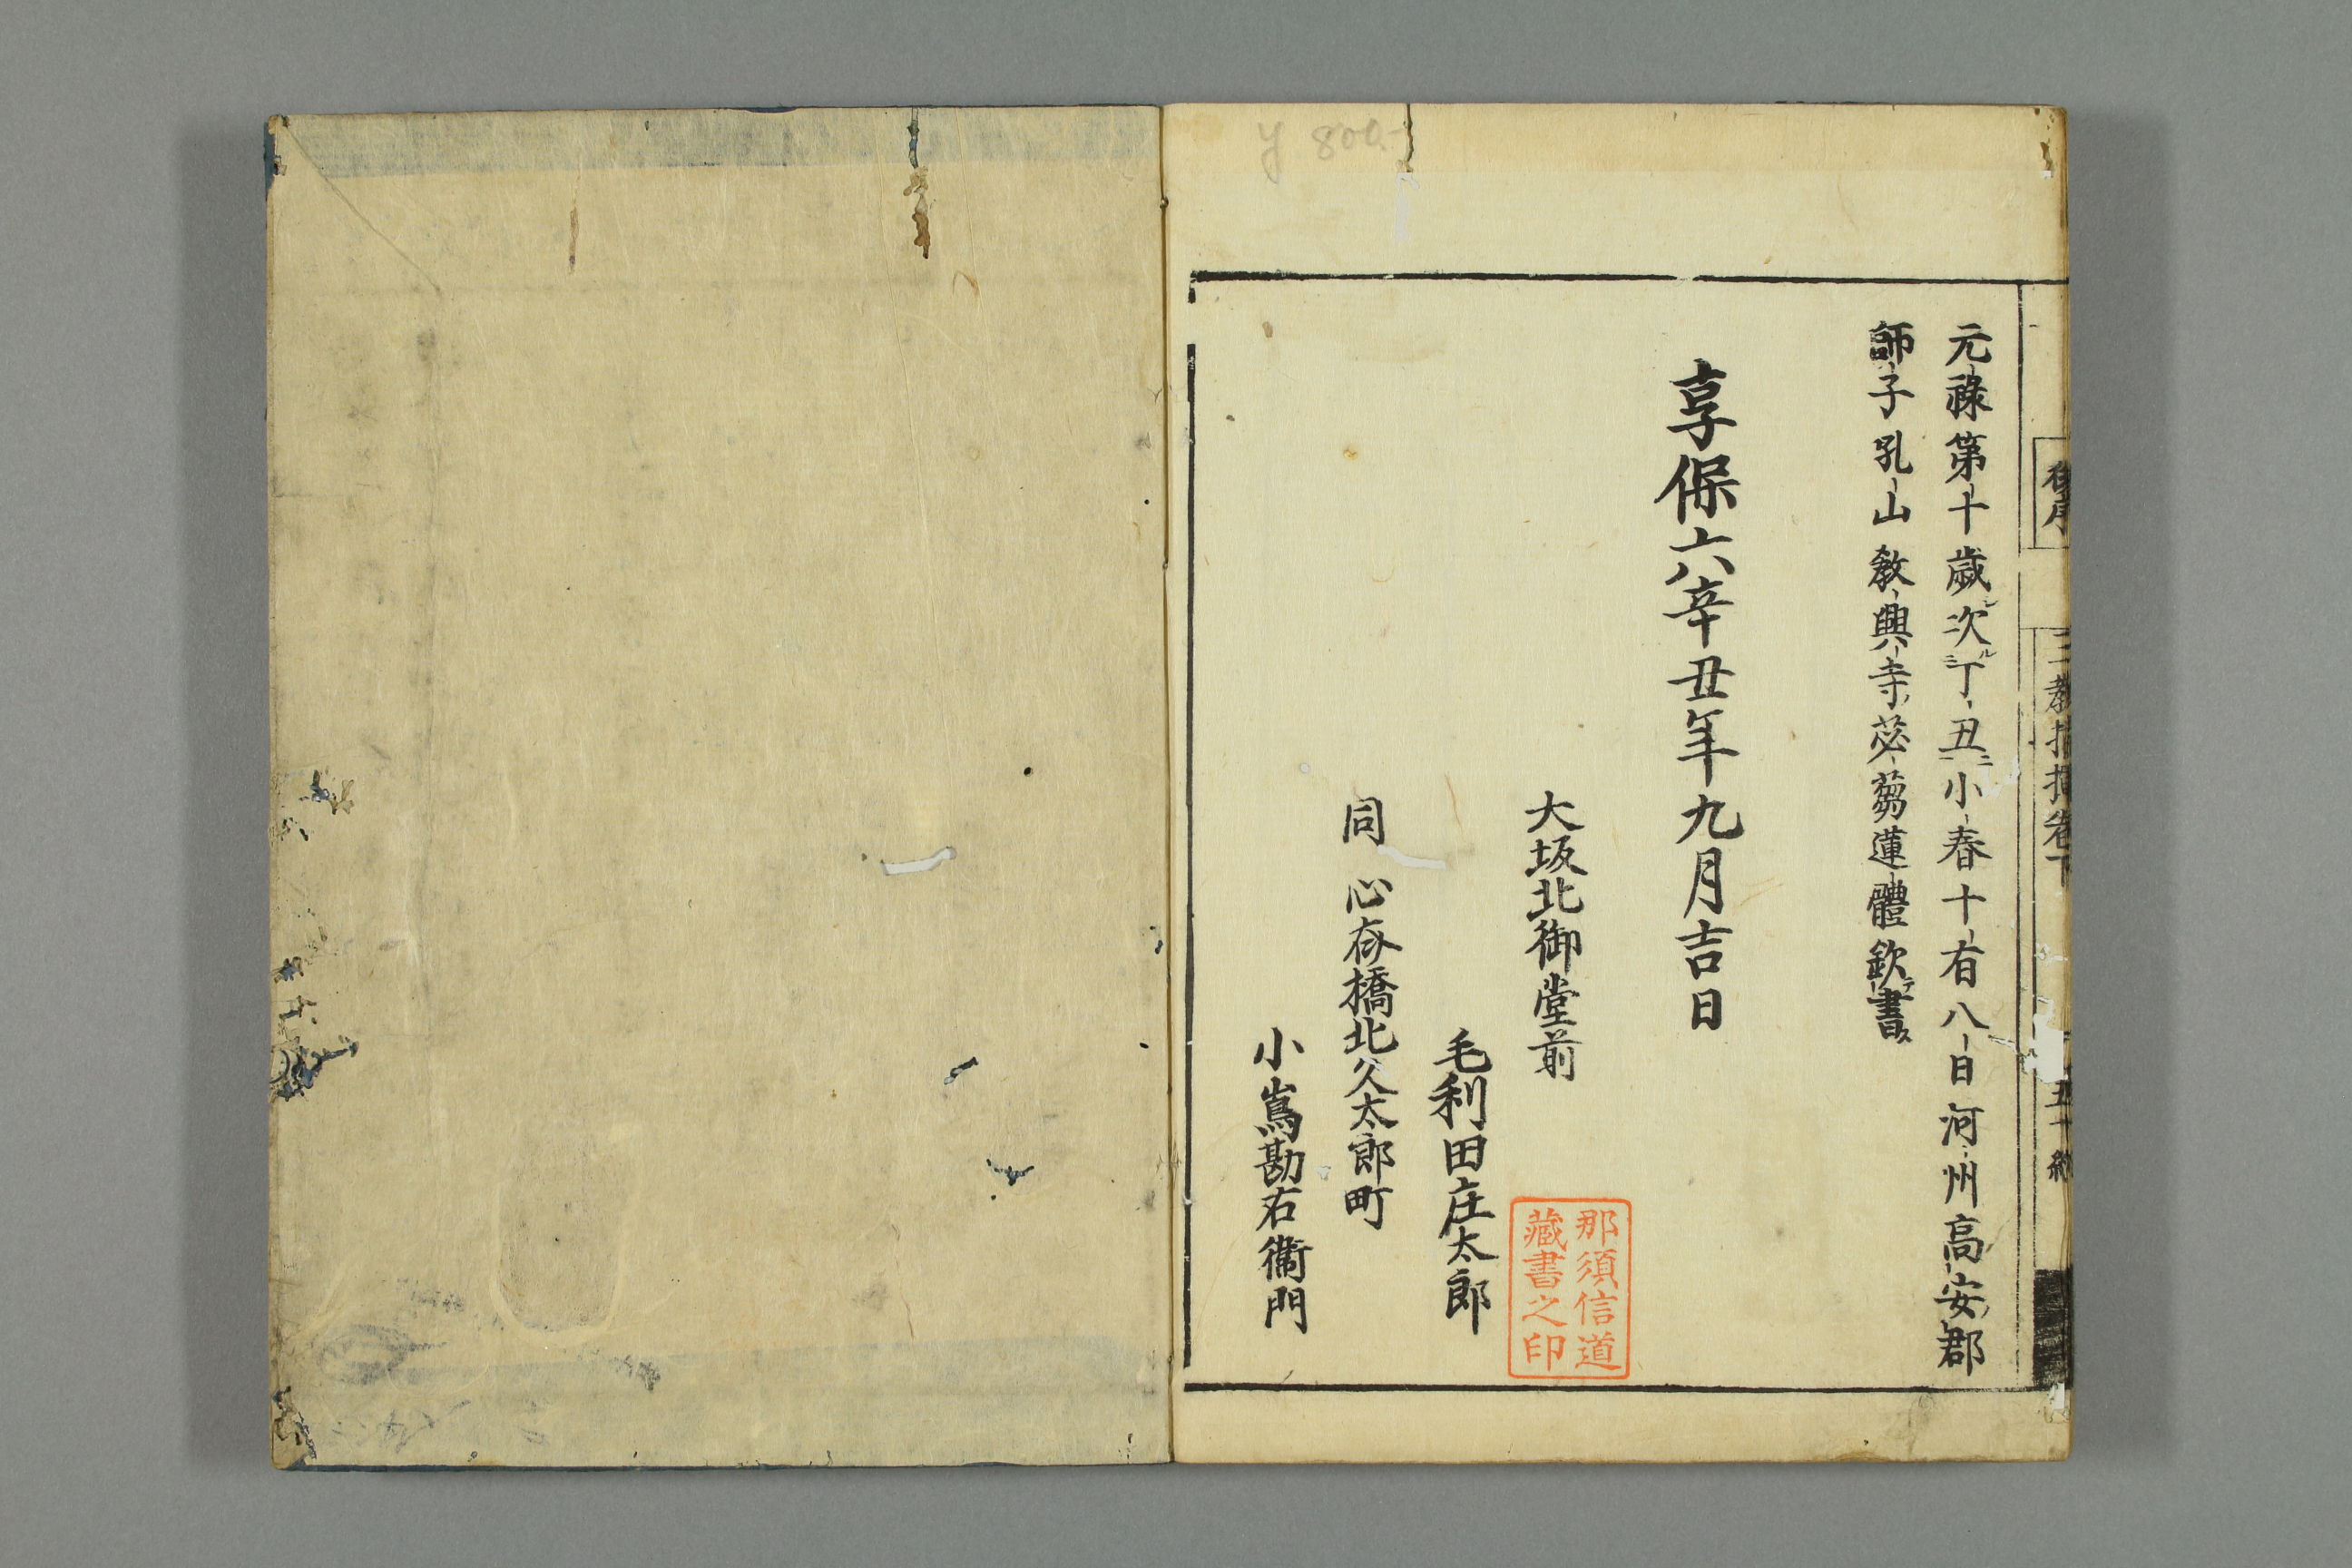 後序
元祿第十歲次丁丑小春十有八日河州高安郡
師子吼山教興寺苾蒭蓮體欽書
享保六辛丑年九月吉日
大坂北御堂前
毛利田庄太郎
同 心斎橋北久太郎町
小嶌勘右衞門
那須信道
藏書之印
y 800-